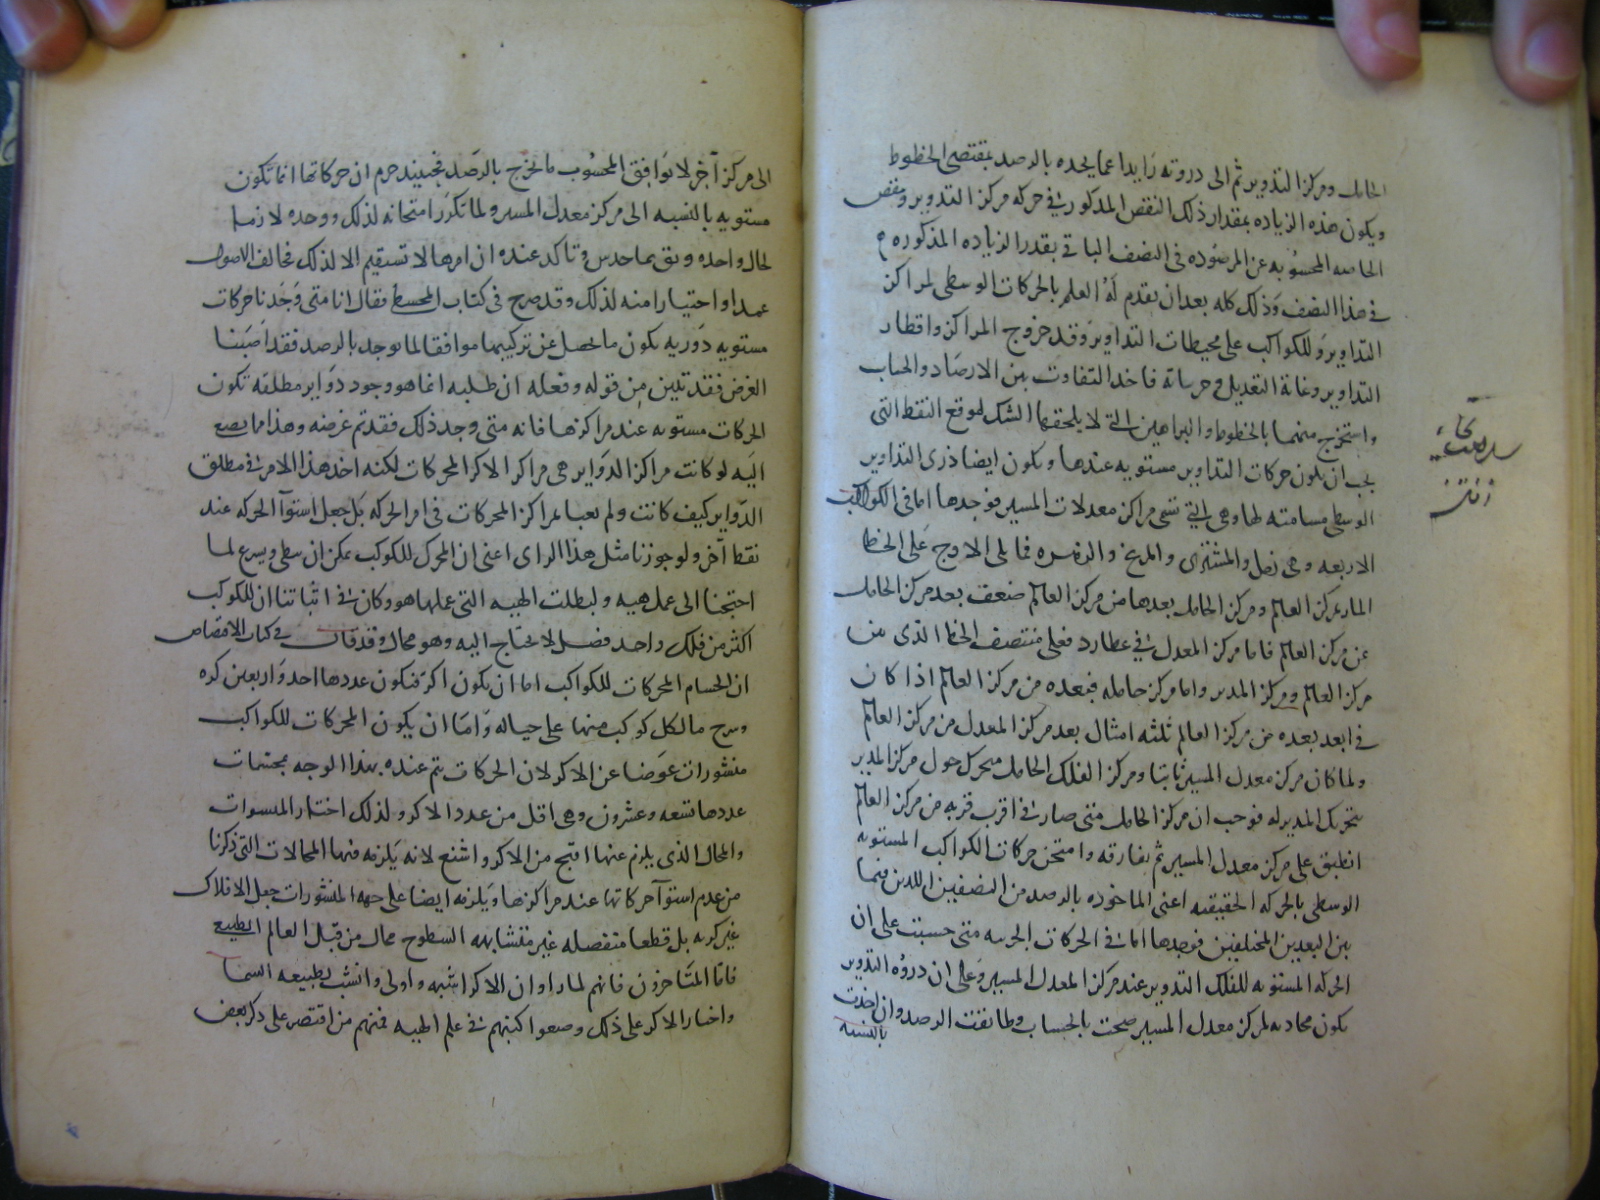 الحامل ومركز التدوير ثم الى دروته زايدا عما يحده بالرصد بمقتضى الخطوط
ويكون هذه الزياده بمقدار ذلك النقص المذكور في حركه مركز التدوير ونقص
الخاصه المحسوبه عن المرصوده في النصف الباقي بقدر الزياده المذكوره
في هذا النصف وذلك كله بعد ان يقدم له العلم بالحركات الوسطى لمراكز
التداوير وللكواكب على محيطات التداوير وقد خروج المراكز واقطار
التداوير وغاية التعديل في حرساته فاخذ التفاوت بين الارصاد والحساب
واستخرج منهما بالخطوط والبراهين التي لا يلحقها الشك لموقع النقط التي
يجب ان يكون حركات التداوير مستويه عندها ويكون ايضا ذرى التداوير
الوسطى مسامته لها وهي التي تسمى مراكز معدلات المسير فوجدها اما في الكواكب
الاربعه وهي زحل والمشترى والمريخ والزهره فما يلى الاوج على الخط
المار بمركز العالم ومركز الحامل بعدها من مركز العالم ضعف بعد مركز الحامل
عن مركز العالم فاما مركز المعدل في عطارد فعلى منتصف الخط الذى من
مركز العالم ومركز المدير واما مركز حامله فبعده من مركز العالم اذا كان
في ابعد بعده من مركز العالم ثلثه امثال بعد مركز المعدل من مركز العالم
ولما كان مركز معدل المسير ثابتا ومركز الفلك الحامل متحرك حول مركز المدير
بتحريك المدير له فوجب ان مركز الحامل متى صار في اقرب قربه من مركز العالم
انطبق على مركز معدل المسير ثم يفارقه وامتحن حركات الكواكب المستويه
الوسطى بالحركه الحقيقيه اعنى الماخوذه بالرصد من النصفين اللذين فيما
بين البعدين المختلفين فوجدها اما في الحركات الجرسه متى حسبت على ان
الحركه المستويه للفلك التدوير عند مركز المعدل المسير وعلى ان دروه التدوير
يكون محاديه لمركز معدل المسير صحت بالحساب وطابقت الرصد وان اخذت
بالنسبه
الى مركز آخر لا يوافق المحسوب ما يخرج بالرصد فحينيذ جزم ان حركاتها انما تكون
مستويه بالنسبه الى مركز معدل المسير ولما تكرر امتحانه لذلك ووجده لازما
لحال واحده وثق بما حدس وتاكد عنده ان امرها لا تستقيم الا لذلك فخالف الاصول
عمدا واختيارا منه لذلك وقد صرح في كتاب المجسطى فقال انا متى وجدنا حركات
مستويه دوريه يكون ما يحصل عن تركيبها موافقا لما يوجد بالرصد فقد اصبنا
الغرض فقد تبين من قوله وفعله ان طلبه انما هو وجود دواير مطلقه تكون
الحركات مستويه عند مراكزها فانه متى وجد ذلك فقد تم غرضه وهذا ما يصح
اليه لو كانت مراكز الدواير هي مراكز الاكر المحركات لكنه اخذ هذا الامر في مطلق
الدواير كيف كانت ولم يعبا بمراكز المحركات في امر الحركه بل جعل استوآ الحركه عند
نقط آخر ولو جوزنا مثل هذا الراى اعنى ان المحرك للكوكب يمكن ان يبطى ويسرع لما
احتجنا الى عمل هيه ولبطلت الهيه التى عملها هو وكان في اثباتنا ان للكوكب
اكثر من فلك واحد فضل لا يحتاج اليه وهو محال وقد قال في كتاب الاقتصاص
ان اجسام المحركات للكواكب اما ان يكون اكر فيكون عددها احد واربعين كره
وشرح ما لكل كوكب منها على حياله واما ان يكون المحركات للكواكب
منشورات عوضا عن الاكر لان الحركات يتم عنده بهذا الوجه بمجسمات
عددها تسعه وعشرون وهي اقل من عدد الاكر ولذلك اختار المنشورات
والمحال الذى يلزم عنها اقبح من الاكر واشنع لانه يلزمه فيها المحالات التى ذكرنا
من عدم استوآ حركاتها عند مراكزها ويلزمه ايضا على جهه المنشورات جعل الافلاك
غير كريه بل قطعا منفصله غير متشابهه السطوح محال من قبل العالم الطبيعى
فاما المتاخرون فانهم لما راوا ان الاكر اشبه واولى وانسب بطبيعه السما
واختار الاكر على ذلك وضعوا كتبهم في علم الهيه فمنهم من اقتصر على ذكر بعض